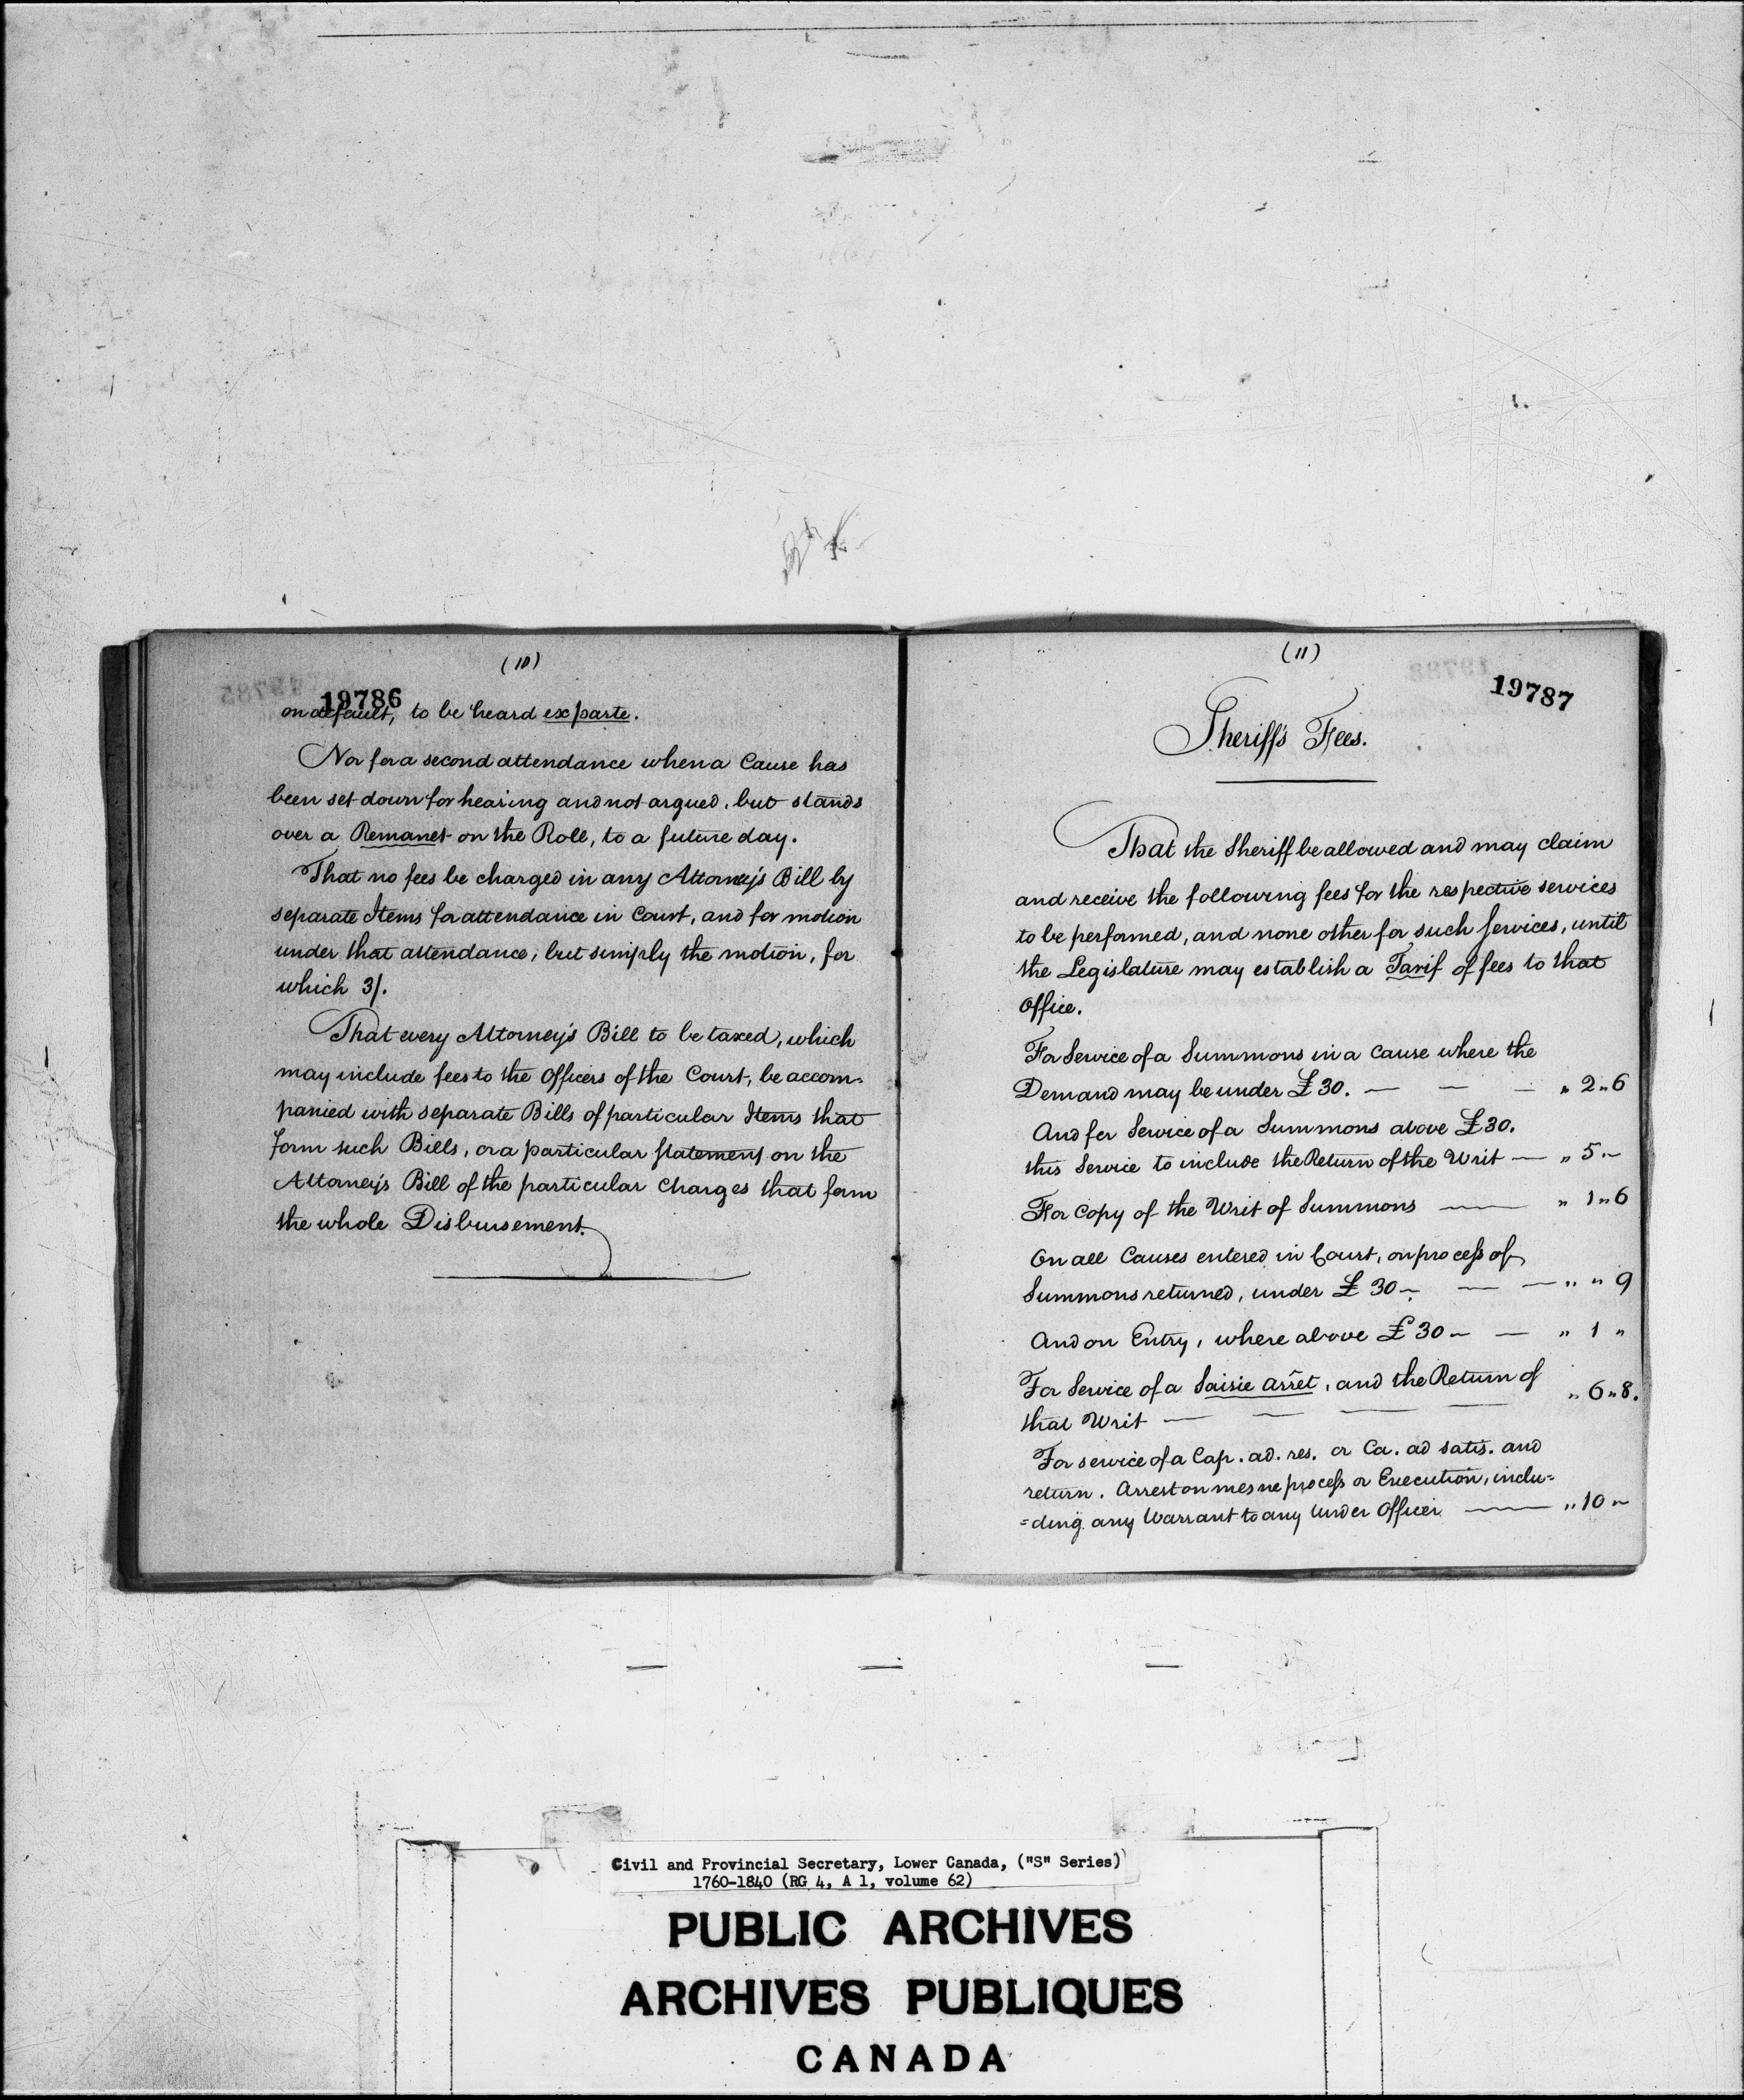 (10)
19786
on default, to be heard ex parte.
Nor for a second attendance when a Cause has
been set down for hearing and not argued, but stands
over a Remanet on the Roll, to a future day.
That no fees be charged in any Attorney's Bill by
separate Items for attendance in Court, and for motion
under that attendance, but simply the motion, for
which 3/.
That every Attorney's Bill to be taxed, which
may include fees to the Officers of the Court, be accom-
panied with separate Bills of particular Items that
form such Bills, or a particular statement on the
Attorney's Bill of the particular Charges that form
the whole Disbursement.
(11)
19787
Sheriff's Fees.
That the Sheriff be allowed and may claim
and receive the following fees for the respective services
to be performed, and none other for such services, until
the Legislature may establish a Tarif of fees to that
Office.
For Service of a Summons in a Cause where the
Demand may be under £30. — — — „ 2„6
And for Service of a Summons above £30.
this Service to include the Return of the Writ — „ 5„–
For Copy of the Writ of Summons — „ 1„6
On all Causes entered in Court, on process of
Summons returned, under £30 – — — „ „ 9
And on Entry, where above £30 – — „ 1 „
For Service of a Saisie arrêt, and the Return of
that Writ — — — — „ 6„8.
For service of a Cap. ad. res. or Ca. ad satis. and
return. Arrest on mesne process or Execution, inclu=
=ding any Warrant to any Under Officer — „ 10 „
Civil and Provincial Secretary, Lower Canada, ("S" Series)
1760-1840 (RG 4, A 1, volume 62)
PUBLIC ARCHIVES
ARCHIVES PUBLIQUES
CANADA